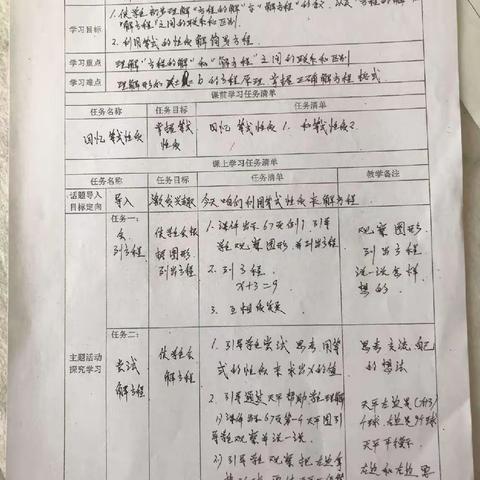 1. 使学生初步理解"方程的解"与"解方程"的含义,以及"方程的解"
学习目标 "解方程"之间的联系和区别
2. 利用等式的性质解简易方程。
学习重点 理解"方程的解"和"解方程"之间的联系和区别
学习难点 理解形如 b 的方程原理,掌握正确解方程格式
课前学习任务清单
任务名称 任务目标 任务清单
回忆等式性质 掌握等式性质 回忆等式性质1.和等式性质2
课上学习任务清单
任务名称 任务目标 任务清单 教学备注
话题导入
目标定向 导入 激发兴趣 今天咱们利用等式性质来解方程
任务一: 1. 课件出示67页例1,引导 观察图形
会 使学生会根 学生观察图形,并列出方程 列出方程
列方程 据图形 2. 列方程 说一说怎样
列出方程 x+3=9 想的。
3. 互相
主题活动
探究学习
任务二: 1. 引导学生尝试思考用等 思考交流自己
尝试 使学生会 式的性质来求出x的值 的想法
解方程 解方程
2. 引导 天平帮助学生理解 天平左边是(x+3)
1) 课件出示67页第一个天平图引 个球,右边是9个球
导学生观察并说一说。 天平平衡
2) 引导学生观察把左边拿 左边和右边要